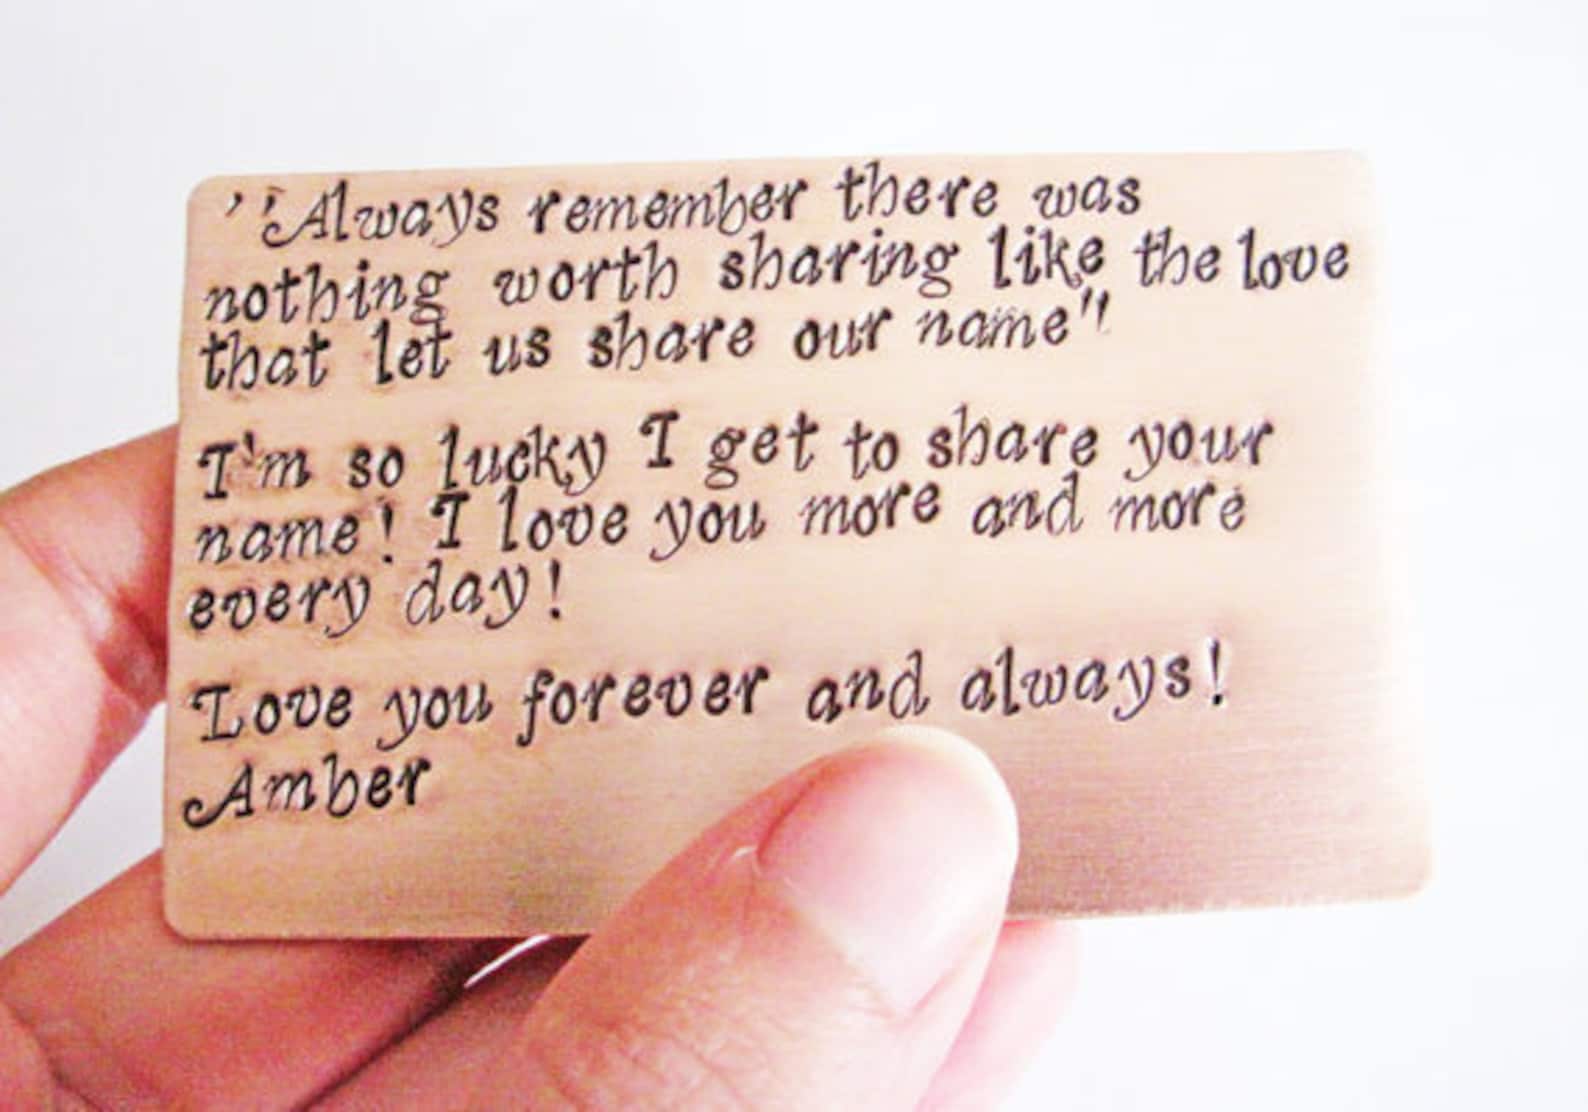 "Always remember there was
nothing worth sharing like the love
that let us share our name"
I'm so lucky I get to share your
name! I love you more and more
every day!
Love you forever and always!
Amber